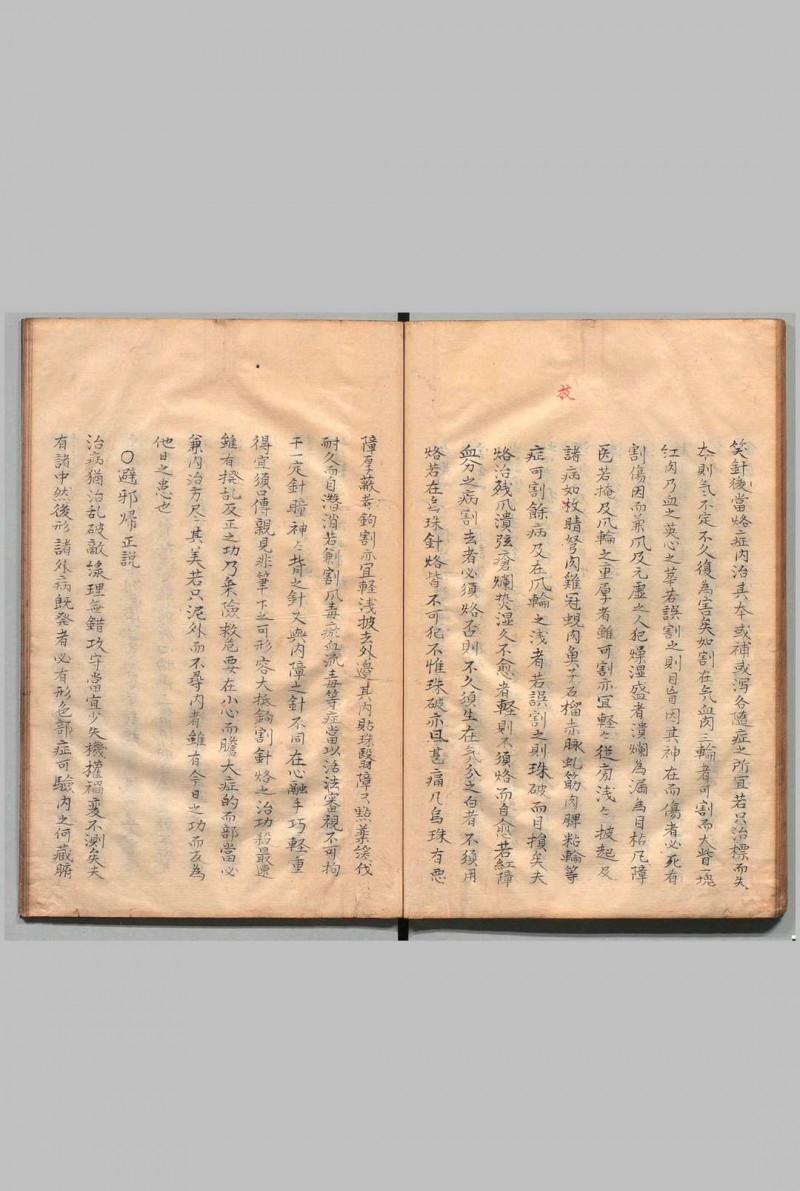 笑針後當烙症内治其本或補或瀉各隨症之所宜若只治標而失
本則氣不定不久復為害矣如割在氣血肉三輪者可割而大眥一塊
紅肉乃血之英心之華若誤割之則目盲因其神在而傷者必死有
割傷因而兼爪及元虚之人犯燥湿盛者潰爛為漏為目枯凡障
医若掩及爪輪之重厚者雖可割亦宜輕々従旁浅々披起及
諸病如枚睛努肉雞冠蜆肉魚子石榴赤脉虬筋内脾粘輪等
症可割餘病及在爪輪之浅者若誤割之則珠破而目損矣夫
烙治残爪潰弦瘡爛熱湿久不愈者輕則不須烙而自愈若紅障
血分之病割去者必須烙否則不久須生在氣分之白者不須用
烙若在烏珠針烙皆不可犯不惟珠破亦且甚痛凡烏珠有悪
障厚蔽者鉤割亦宜輕浅披去外邉其内貼珠翳障只點薬後伐
耐久而自潜消若劆割爪毒瘀血流毒等症當以活法審視不可拘
于一定針瞳神々背之針又與内障之針不同在心融手巧輕重
得宜須口傳親見非筆下之可形容大抵鉤割針烙之治功殺最速
雖有撥乱及正之功乃乗險救危要在小心而膽大症的而部當必
兼内治方尽其美若只泥外而不尋内者雖有今日之功而反為
他日之患也
〇避邪帰正説
治病猶治乱破敵縁理毎錯攻守當宜少失機權禍変不測矣夫
有諸中然後形諸外病既発者必有形色部症可驗内之何藏腑
技